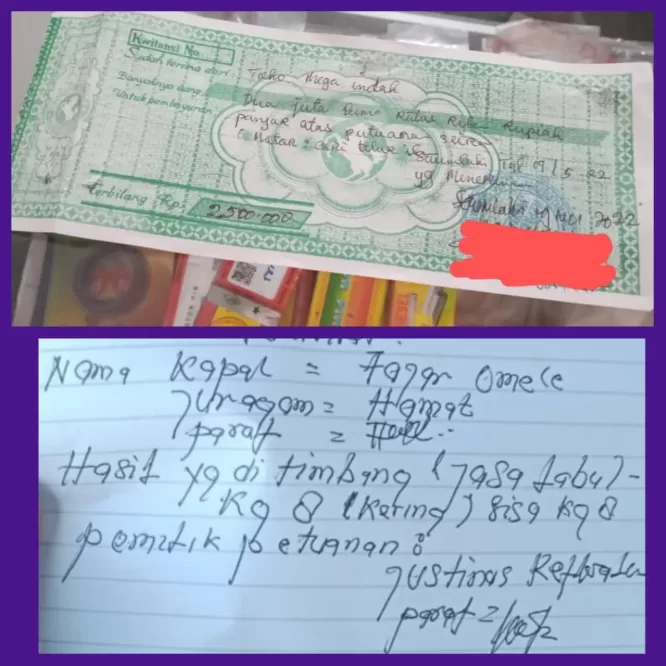 Kwitansi No.
Sudah terima dari: Toko Mega indah
Banyaknya uang: Dua juta Lima Ratus Ribu Rupiah
Untuk pembayaran: panjar atas petuana
( Natar : cari telur
Saumlaki Tgl 09/5-22
yg Menerima
Saumlaki 2022
Terbilang Rp. 2.500.000
Nama Kapal = Fajar Omele
Juragam = Hamat
paraf =
Hasil yg di timbang (jasa tabul) -
Kg 8 (Kering) Sisa Kg 8
pemilik petuanan :
Justinus
paraf =